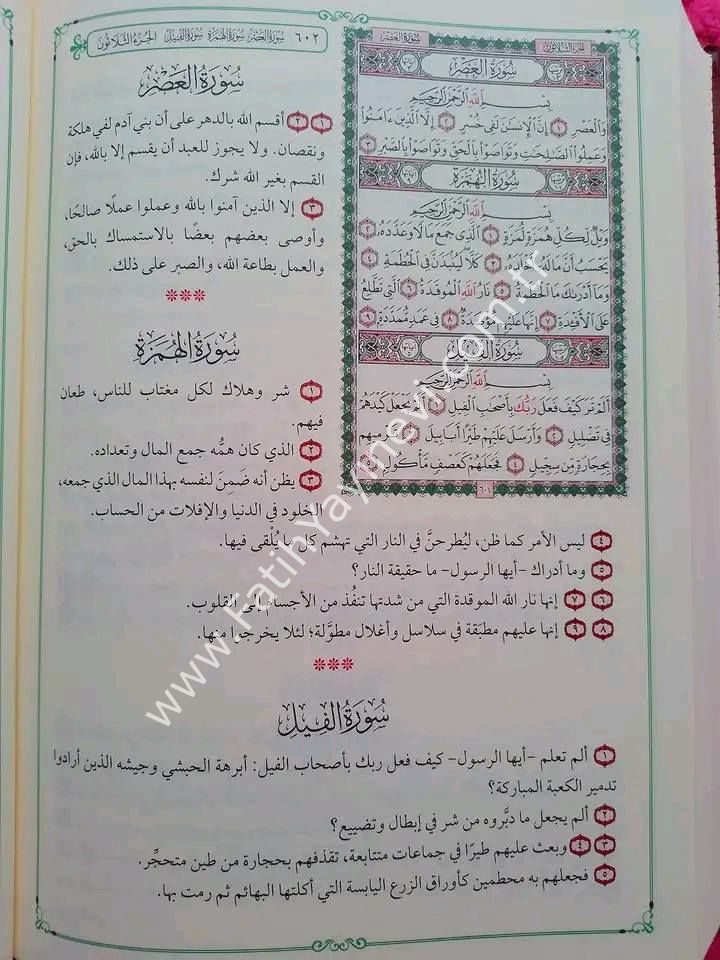 الجزء الثلاثون سورة الفيل سورة الهمزة سورة العصر ٦٠٢
الجزء الثلاثون سورة العصر
سُورَةُ العَصْرِ
بِسْمِ اللَّهِ الرَّحْمَٰنِ الرَّحِيمِ
وَالْعَصْرِ ١ إِنَّ الْإِنسَانَ لَفِي خُسْرٍ ٢ إِلَّا الَّذِينَ ءَامَنُوا
وَعَمِلُوا الصَّالِحَاتِ وَتَوَاصَوْا بِالْحَقِّ وَتَوَاصَوْا بِالصَّبْرِ ٣
سُورَةُ الهُمَزَةِ
بِسْمِ اللَّهِ الرَّحْمَٰنِ الرَّحِيمِ
وَيْلٌ لِكُلِّ هُمَزَةٍ لُمَزَةٍ ١ الَّذِي جَمَعَ مَالًا وَعَدَّدَهُ ٢
يَحْسَبُ أَنَّ مَالَهُ أَخْلَدَهُ ٣ كَلَّا لَيُنبَذَنَّ فِي الْحُطَمَةِ ٤
وَمَا أَدْرَاكَ مَا الْحُطَمَةُ ٥ نَارُ اللَّهِ الْمُوقَدَةُ ٦ الَّتِي تَطَّلِعُ
عَلَى الْأَفْئِدَةِ ٧ إِنَّهَا عَلَيْهِم مُّؤْصَدَةٌ ٨ فِي عَمَدٍ مُّمَدَّدَةٍ ٩
سُورَةُ الفِيلِ
بِسْمِ اللَّهِ الرَّحْمَٰنِ الرَّحِيمِ
أَلَمْ تَرَ كَيْفَ فَعَلَ رَبُّكَ بِأَصْحَابِ الْفِيلِ ١ أَلَمْ يَجْعَلْ كَيْدَهُمْ
فِي تَضْلِيلٍ ٢ وَأَرْسَلَ عَلَيْهِمْ طَيْرًا أَبَابِيلَ ٣ تَرْمِيهِم
بِحِجَارَةٍ مِّن سِجِّيلٍ ٤ فَجَعَلَهُمْ كَعَصْفٍ مَّأْكُولٍ ٥
٦٠١
سُورَةُ العَصْرِ
١ ٢ أقسم الله بالدهر على أن بني آدم لفي هلكة
ونقصان. ولا يجوز للعبد أن يقسم إلا بالله، فإن
القسم بغير الله شرك.
٣ إلا الذين آمنوا بالله وعملوا عملًا صالحًا،
وأوصى بعضهم بعضًا بالاستمساك بالحق،
والعمل بطاعة الله، والصبر على ذلك.
***
سُورَةُ الهُمَزَةِ
١ شر وهلاك لكل مغتاب للناس، طعان
فيهم.
٢ الذي كان همُّه جمع المال وتعداده.
٣ يظن أنه ضَمِنَ لنفسه بهذا المال الذي جمعه،
الخلود في الدنيا والإفلات من الحساب.
٤ ليس الأمر كما ظن، ليُطرحنَّ في النار التي تهشم كل ما يُلْقى فيها.
٥ وما أدراك -أيها الرسول- ما حقيقة النار؟
٦ ٧ إنها نار الله الموقدة التي من شدتها تنفُذ من الأجسام إلى القلوب.
٨ ٩ إنها عليهم مطبَقة في سلاسل وأغلال مطوَّلة؛ لئلا يخرجوا منها.
***
سُورَةُ الفِيلِ
١ ألم تعلم -أيها الرسول- كيف فعل ربك بأصحاب الفيل: أبرهة الحبشي وجيشه الذين أرادوا
تدمير الكعبة المباركة؟
٢ ألم يجعل ما دبَّروه من شر في إبطال وتضييع؟
٣ ٤ وبعث عليهم طيرًا في جماعات متتابعة، تقذفهم بحجارة من طين متحجِّر.
٥ فجعلهم به محطمين كأوراق الزرع اليابسة التي أكلتها البهائم ثم رمت بها.
www.FatihYayinevi.com.tr